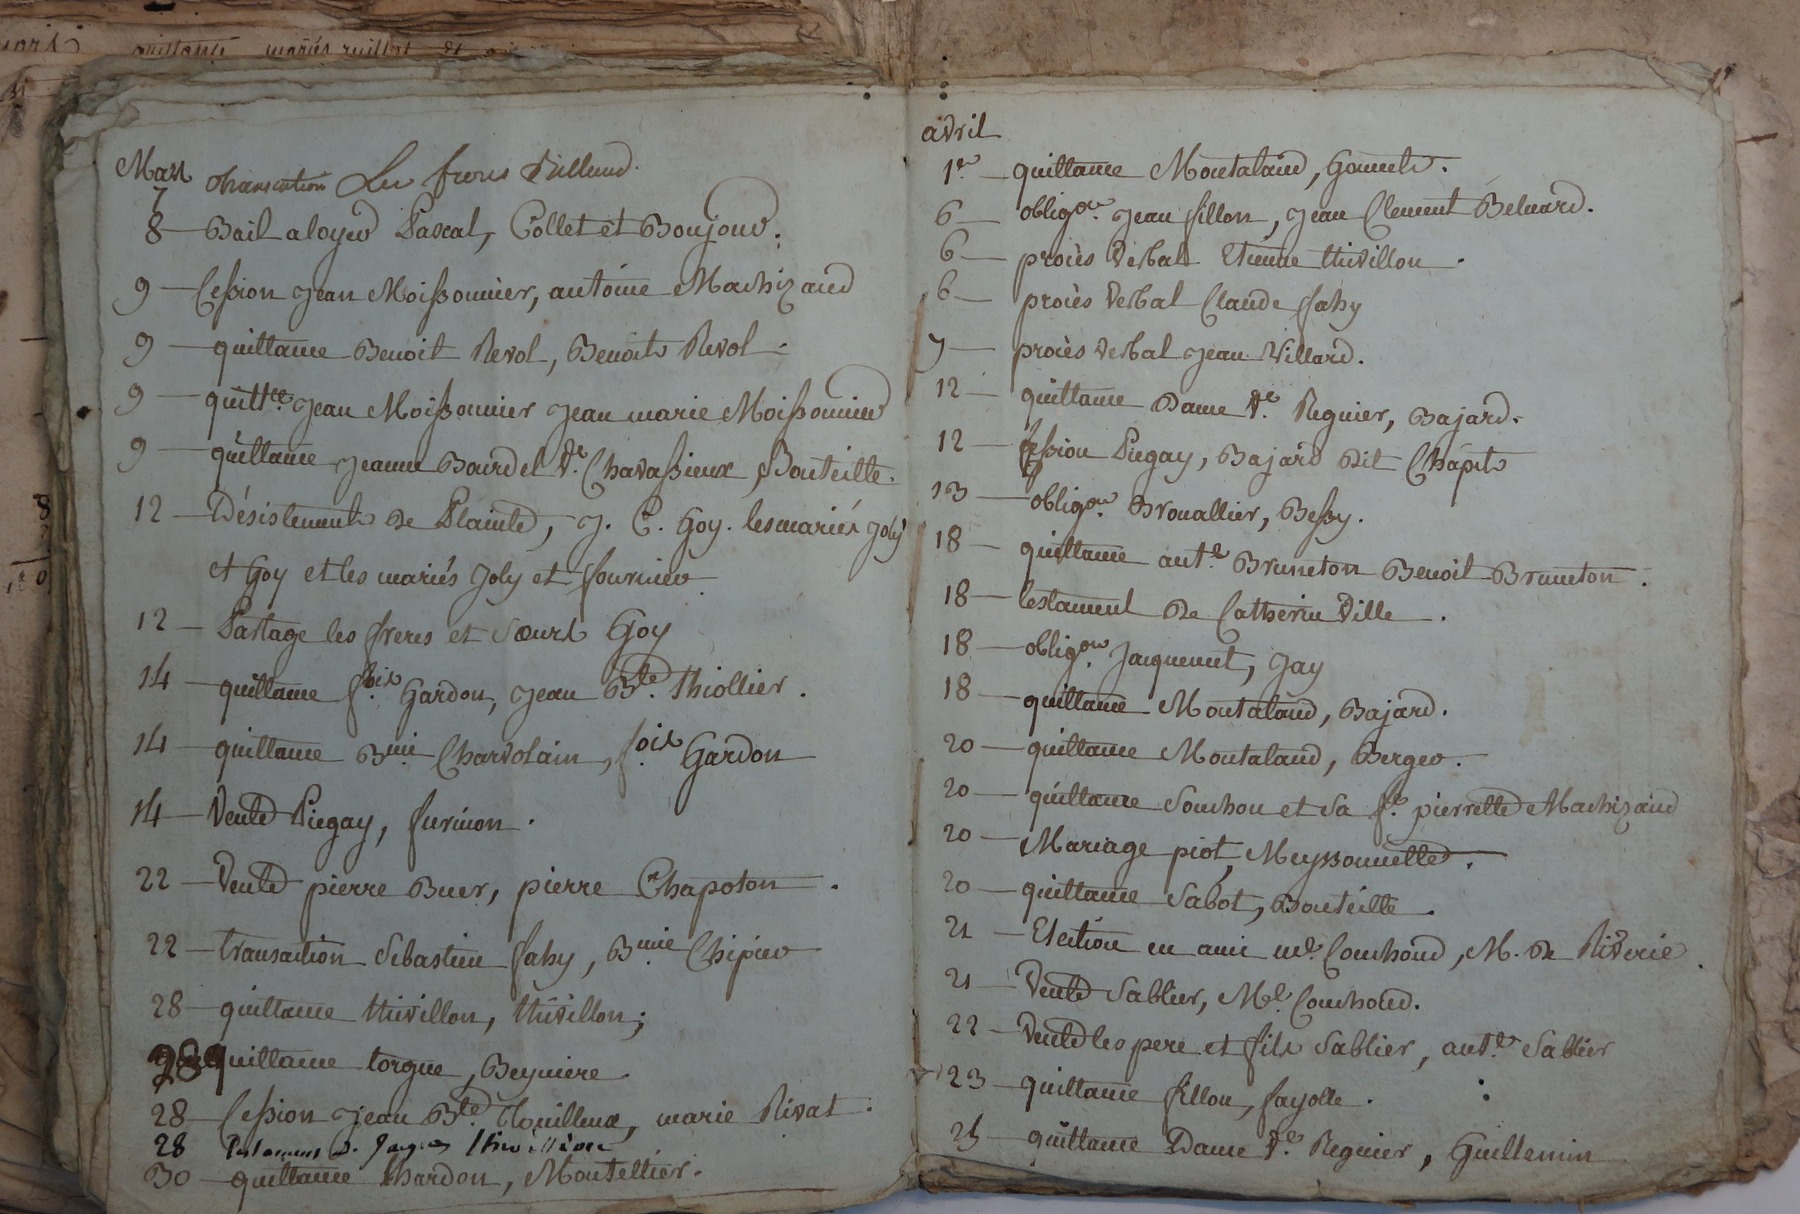 quittance mariés
Mars
7 transaction Les freres Villend.
8 Bail a loyer Pascal, Collet et Boujour.
9 Cession Jean Moissonnier, antoine Machizaud
9 quittance Benoit Revol, Benoit Revol.
9 quittce. Jean Moissonnier Jean marie Moissonnier
9 quittance Jeanne Bourdel Ve. Chavassieux, Bouteille.
12 Désistement de Plainte, J. C. Goy. les mariés Joly
et Goy et les mariés Joly et fournier
12 Partage les freres et soeurs Goy
14 quittance fois Gardon, Jean Bte. Thiollier.
14 quittance Bmi Charvolain, fois Gardon
14 Vente Piegay, furnion.
22 Vente pierre Buer, pierre Chapoton.
22 transaction Sebastien fahy, Bmie Chipier
28 quittance thivillon, thivillon;
28 quittance torgue, Beyniere
28 Cession Jean Bte. Thouilleux, marie Rivat.
28 Testament de Jacques
30 quittance Chardon, Montellier.
avril
1er quittance Montaland,
6 obligon. Jean fillon, Jean Clement Beluard.
6 procès verbal Etienne thivillon.
6 procès verbal Claude fahy
7 procès verbal Jean Villard.
12 quittance Dame Ve. Regnier, Bajard.
12 Cession Piegay, Bajard dit Chapit
13 obligon. Brouallier, Bessy.
18 quittance ante. Bruneton Benoit Bruneton.
18 testament de Catherine Ville.
18 obligon. Jacquemet, Jay
18 quittance Montaland, Bajard.
20 quittance Montaland, Berger.
20 quittance Souchon et sa fe. pierrette Machizaud
20 Mariage piot, Meyssonnette.
20 quittance Sabot, Bouteille.
21 Election en ami mel. Couhoud, M. de Riverie.
21 Vente Sablier, Mel. Couhoud.
22 Vente les pere et fils Sablier, ante. Sablier
23 quittance fillon, fayolle.
25 quittance Dame Ve. Regnier, Guillemin